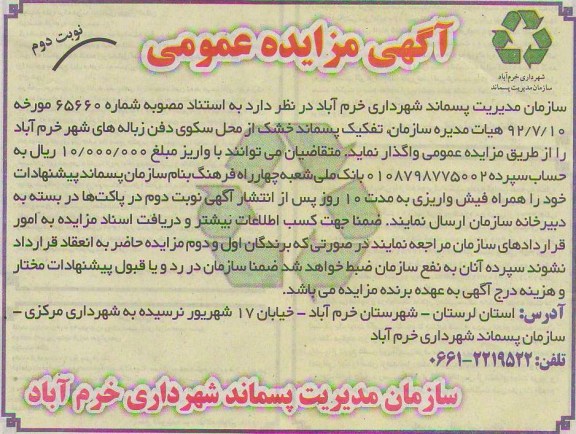 آگهی مزایده عمومی
نوبت دوم
شهرداری خرم آباد
سازمان مدیریت پسماند
سازمان مدیریت پسماند شهرداری خرم آباد در نظر دارد به استناد مصوبه شماره ۶۵۶۶۰ مورخه
۹۲/۷/۱۰ هیات مدیره سازمان، تفکیک پسماند خشک از محل سکوی دفن زباله های شهر خرم آباد
را از طریق مزایده عمومی واگذار نماید. متقاضیان می توانند با واریز مبلغ ۱۰/۰۰۰/۰۰۰ ریال به
حساب سپرده ۰۱۰۸۷۹۸۷۷۵۰۰۲ بانک ملی شعبه چهارراه فرهنگ بنام سازمان پسماند پیشنهادات
خود را همراه فیش واریزی به مدت ۱۰ روز پس از انتشار آگهی نوبت دوم در پاکت‌ها در بسته به
دبیرخانه سازمان ارسال نمایند. ضمنا جهت کسب اطلاعات بیشتر و دریافت اسناد مزایده به امور
قراردادهای سازمان مراجعه نمایند در صورتی که برندگان اول و دوم مزایده حاضر به انعقاد قرارداد
نشوند سپرده آنان به نفع سازمان ضبط خواهد شد ضمنا سازمان در رد و یا قبول پیشنهادات مختار
و هزینه درج آگهی به عهده برنده مزایده می باشد.
آدرس: استان لرستان – شهرستان خرم آباد – خیابان ۱۷ شهریور نرسیده به شهرداری مرکزی –
سازمان پسماند شهرداری خرم آباد
تلفن: ۲۲۱۹۵۲۲-۰۶۶۱
سازمان مدیریت پسماند شهرداری خرم آباد